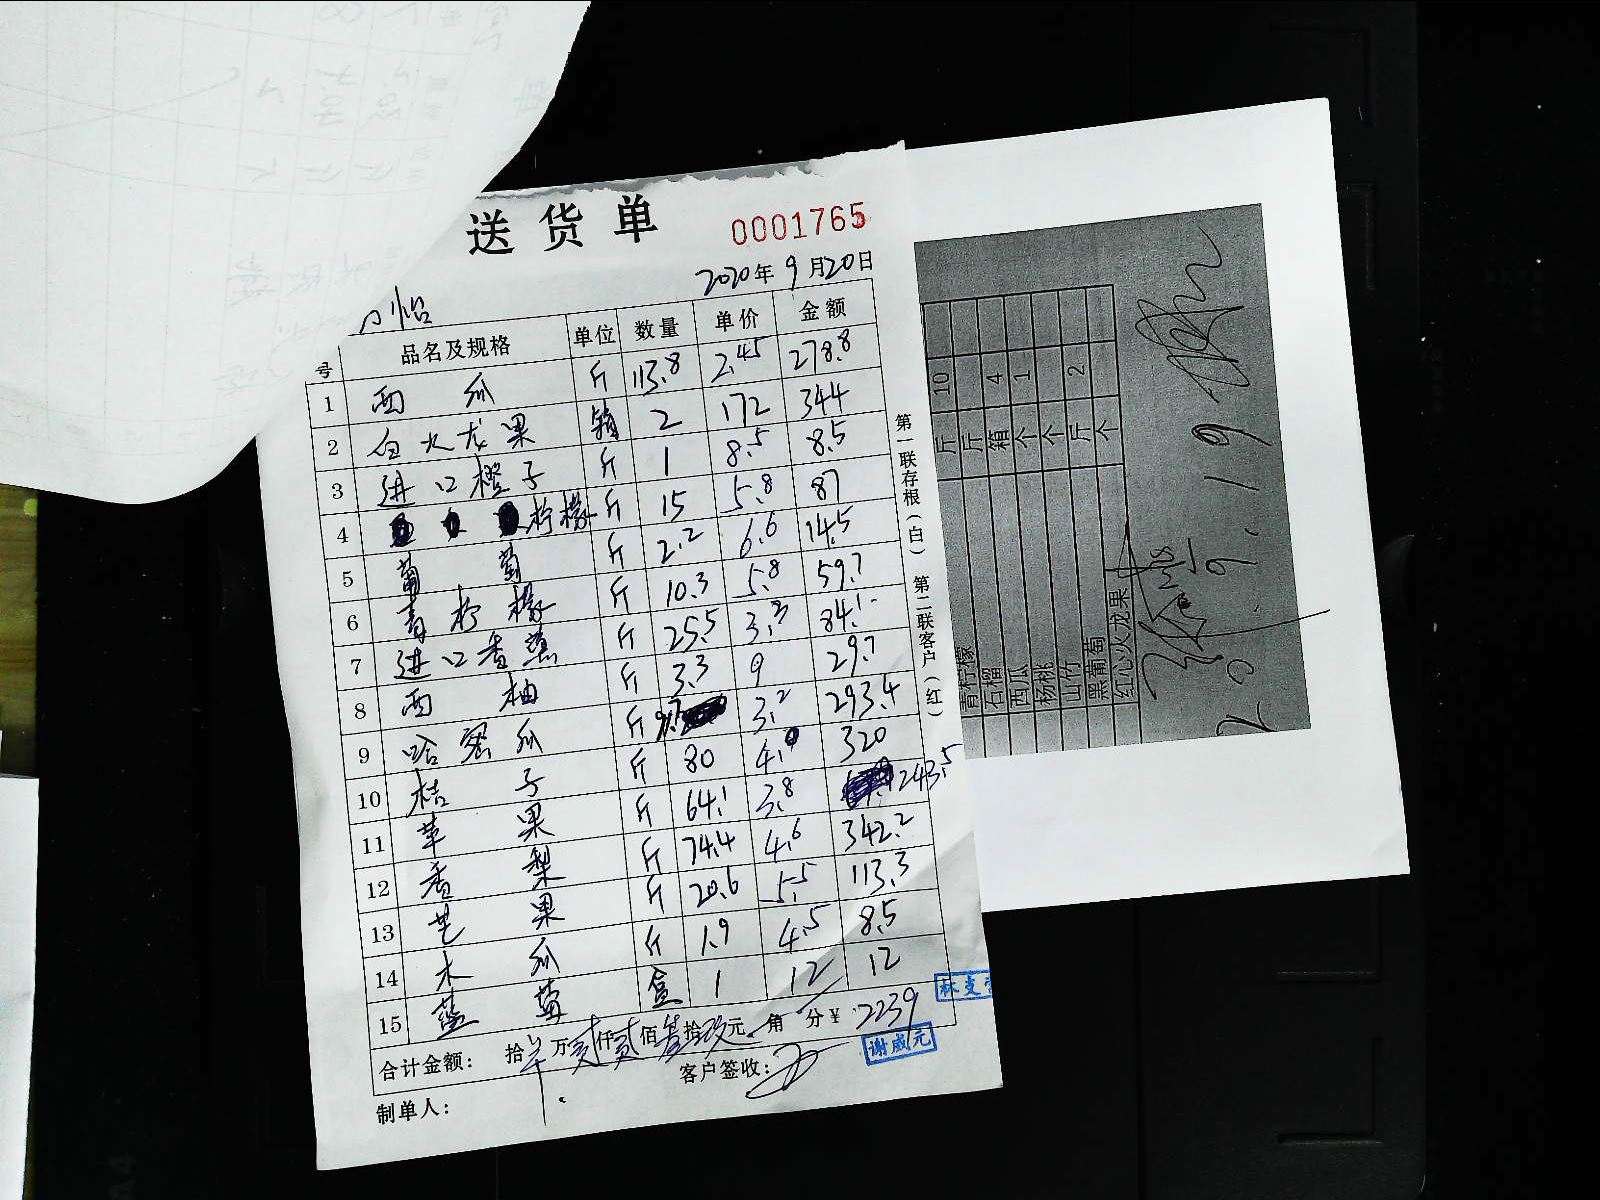 送货单 0001765
2020年9月20日
怡
号 品名及规格 单位 数量 单价 金额
1 西瓜 斤 113.8 2.45 278.8
2 白火龙果 箱 2 172 344
3 进口橙子 斤 1 8.5 8.5
4 柠檬 斤 15 5.8 87
5 葡萄 斤 2.2 6.6 14.5
6 青柠檬 斤 10.3 5.8 59.7
7 进口香蕉 斤 25.5 3.3 84.1
8 西柚 斤 3.3 9 29.7
9 哈密瓜 斤 3.2 293.4
10 桔子 斤 80 4.0 320
11 苹果 斤 64.1 3.8 243.5
12 香梨 斤 74.4 4.6 342.2
13 芒果 斤 20.6 5.5 113.3
14 木瓜 斤 1.9 4.5 8.5
15 蓝莓 盒 1 12 12
合计金额: 拾 万贰仟贰佰叁拾玖元 角 分¥ 2239
制单人: 客户签收:
谢威元
第一联存根(白) 第二联客户(红)
青柠檬 斤 10
石榴 斤
西瓜 箱 4
杨桃 个 1
山竹 个
黑葡萄 斤 2
红心火龙果 个
9.19